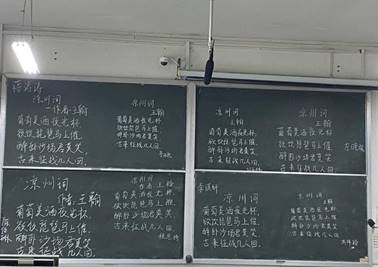 凉州词
作者:王翰
葡萄美酒夜光杯,
欲饮琵琶马上催。
醉卧沙场君莫笑,
古来征战几人回。
凉州词
王翰
葡萄美酒夜光杯,
欲饮琵琶马上催。
醉卧沙场君莫笑,
古来征战几人回。
凉州词
王翰
葡萄美酒夜光杯,
欲饮琵琶马上催。
醉卧沙场君莫笑,
古来征战几人回。
凉州词
王翰
葡萄美酒夜光杯,
欲饮琵琶马上催,
醉卧沙场君莫笑,
古来征战几人回。
凉州词
作者:王翰
葡萄美酒夜光杯,
欲饮琵琶马上催。
醉卧沙场君莫笑
古来征战几人回。
凉州词
作者 王翰
葡萄美酒夜光杯,
欲饮琵琶马上催。
醉卧沙场君莫笑,
古来征战几人回。
凉州词
王翰
葡萄美酒夜光杯,
欲饮琵琶马上催。
醉卧沙场君莫笑,
古来征战几人回。
凉州词
王翰
葡萄美酒夜光杯,
欲饮琵琶马上催。
醉卧沙场君莫笑,
古来征战几人回。